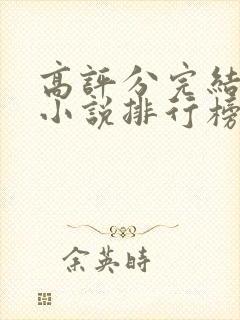 高評分完結
小說排行榜
余英時